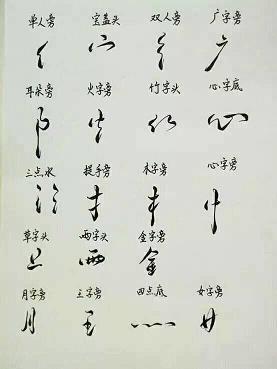 单人旁 宝盖头 双人旁 广字旁
亻 宀 彳 广
耳朵旁 火字旁 竹字头 心字底
阝 火 ⺮ 心
三点水 提手旁 木字旁 心字旁
氵 扌 木 忄
草字头 西字头 金字旁
艹 覀 金
月字旁 王字旁 四点底 女字旁
月 王 灬 女